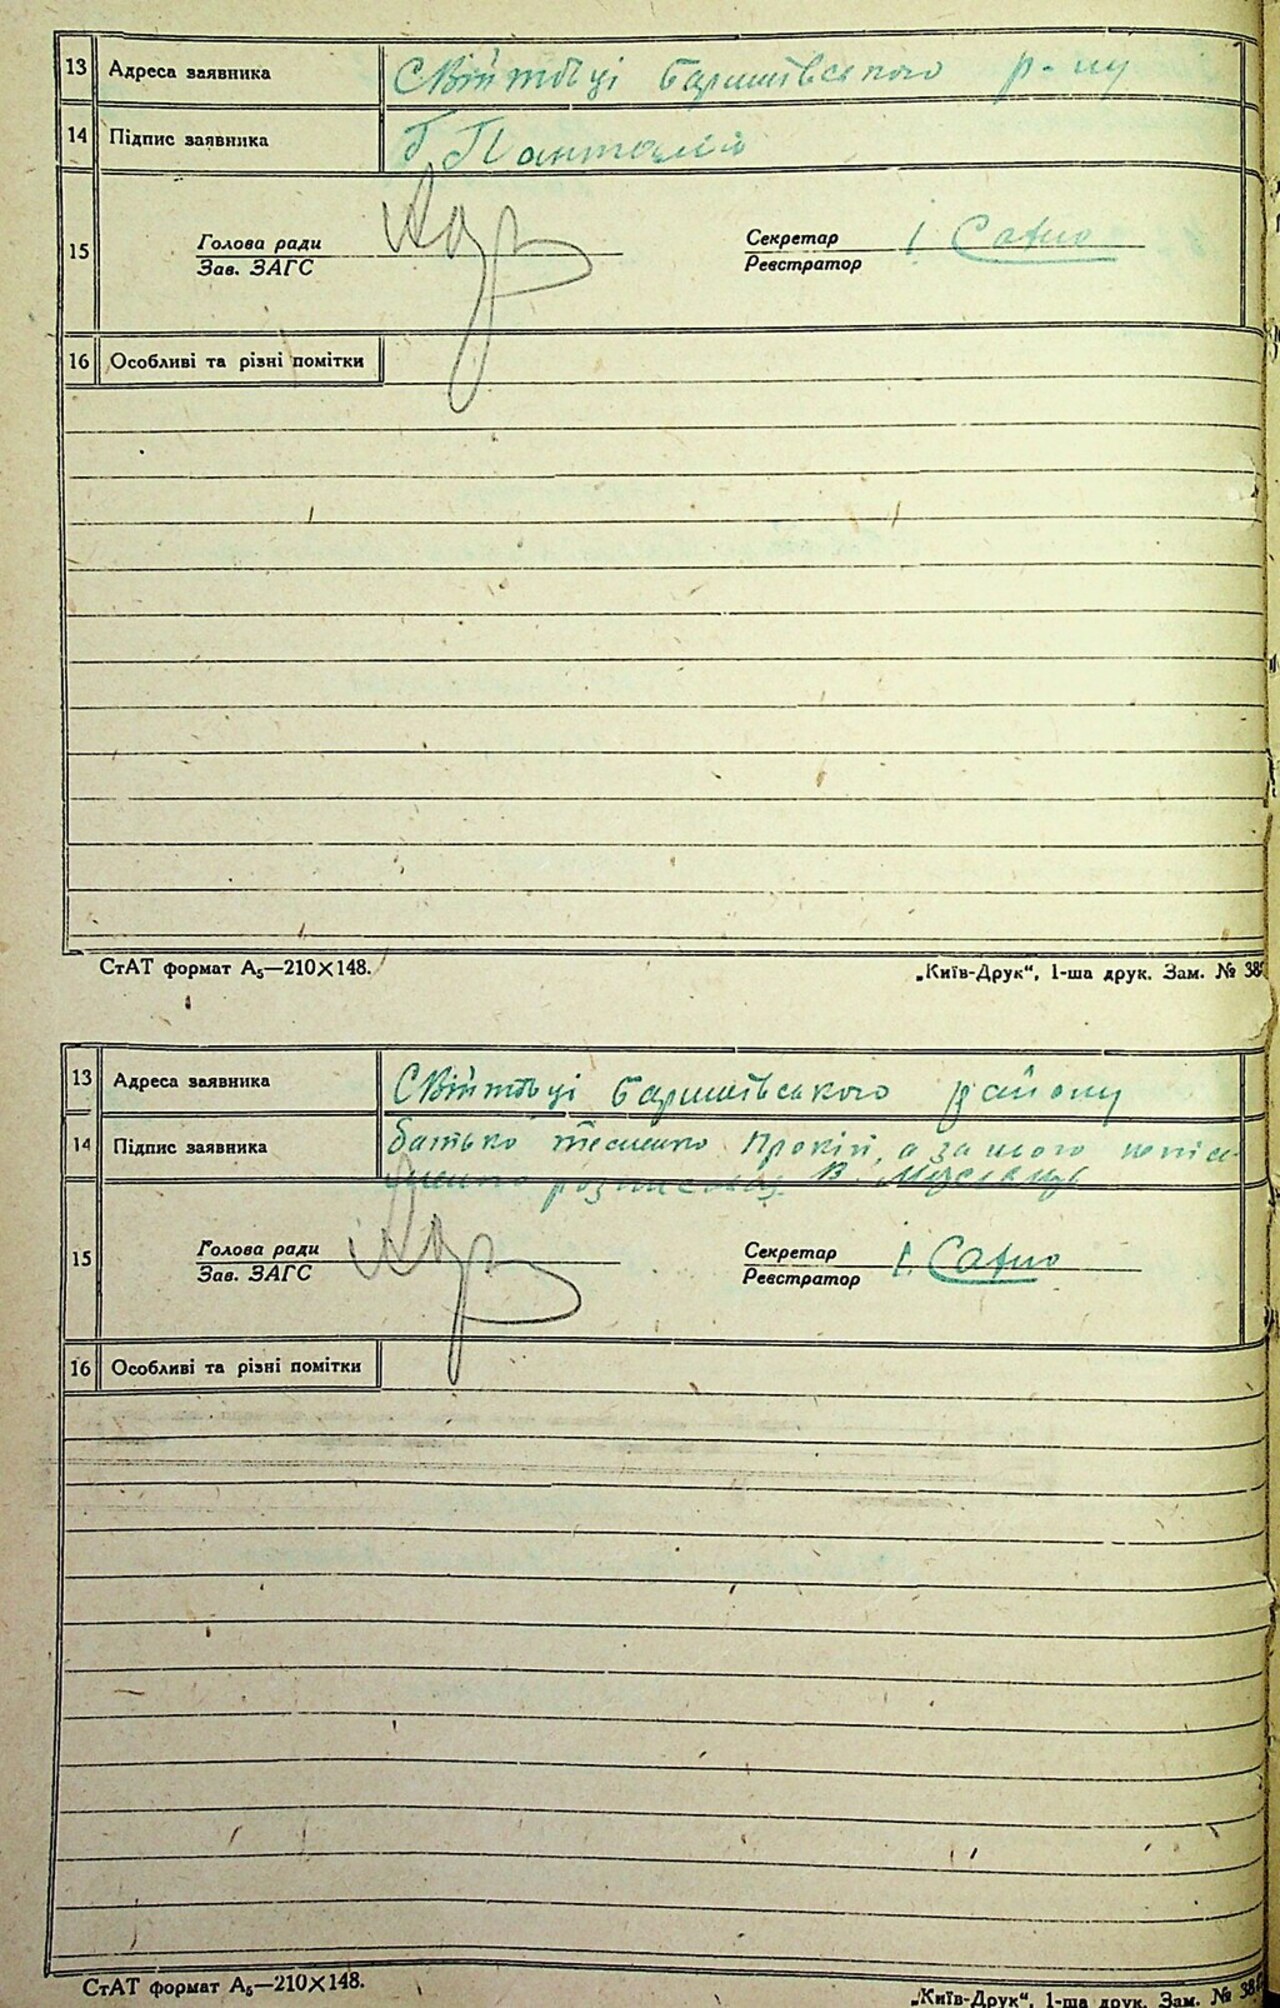 13 Адреса заявника С Війтовці Баришівського р-ну
14 Підпис заявника Г Панталій
15 Голова ради
Зав. ЗАГС
Секретар І.
Реєстратор
16 Особливі та різні помітки
СтАТ формат А₅—210×148.
„Київ-Друк“, 1-ша друк. Зам. № 38
13 Адреса заявника С Війтовці Баришівського району
14 Підпис заявника батько Тесленко Прокіп, а за нього
розписався В.
15 Голова ради
Зав. ЗАГС
Секретар І.
Реєстратор
16 Особливі та різні помітки
СтАТ формат А₅—210×148.
„Київ-Друк“, 1-ша друк. Зам. № 38